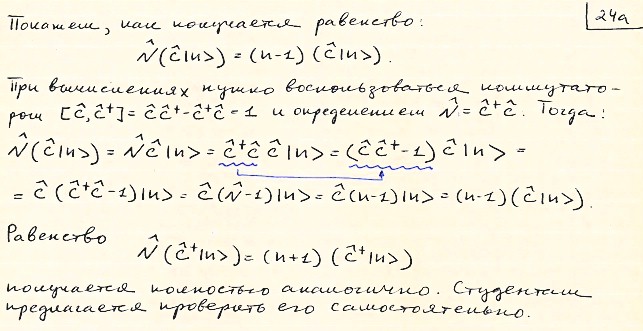 24а
Покажем, как получается равенство:
N̂(ĉ|n>) = (n-1)(ĉ|n>).
При вычислениях нужно воспользоваться коммутато-
ром [ĉ,ĉ⁺]=ĉĉ⁺-ĉ⁺ĉ=1 и определением N̂=ĉ⁺ĉ. Тогда:
N̂(ĉ|n>) = N̂ĉ|n> = ĉ⁺ĉĉ|n> = (ĉĉ⁺-1)ĉ|n> =
= ĉ(ĉ⁺ĉ-1)|n> = ĉ(N̂-1)|n> = ĉ(n-1)|n> = (n-1)(ĉ|n>).
Равенство
N̂(ĉ⁺|n>) = (n+1)(ĉ⁺|n>)
получается полностью аналогично. Студентам
предлагается проверить его самостоятельно.